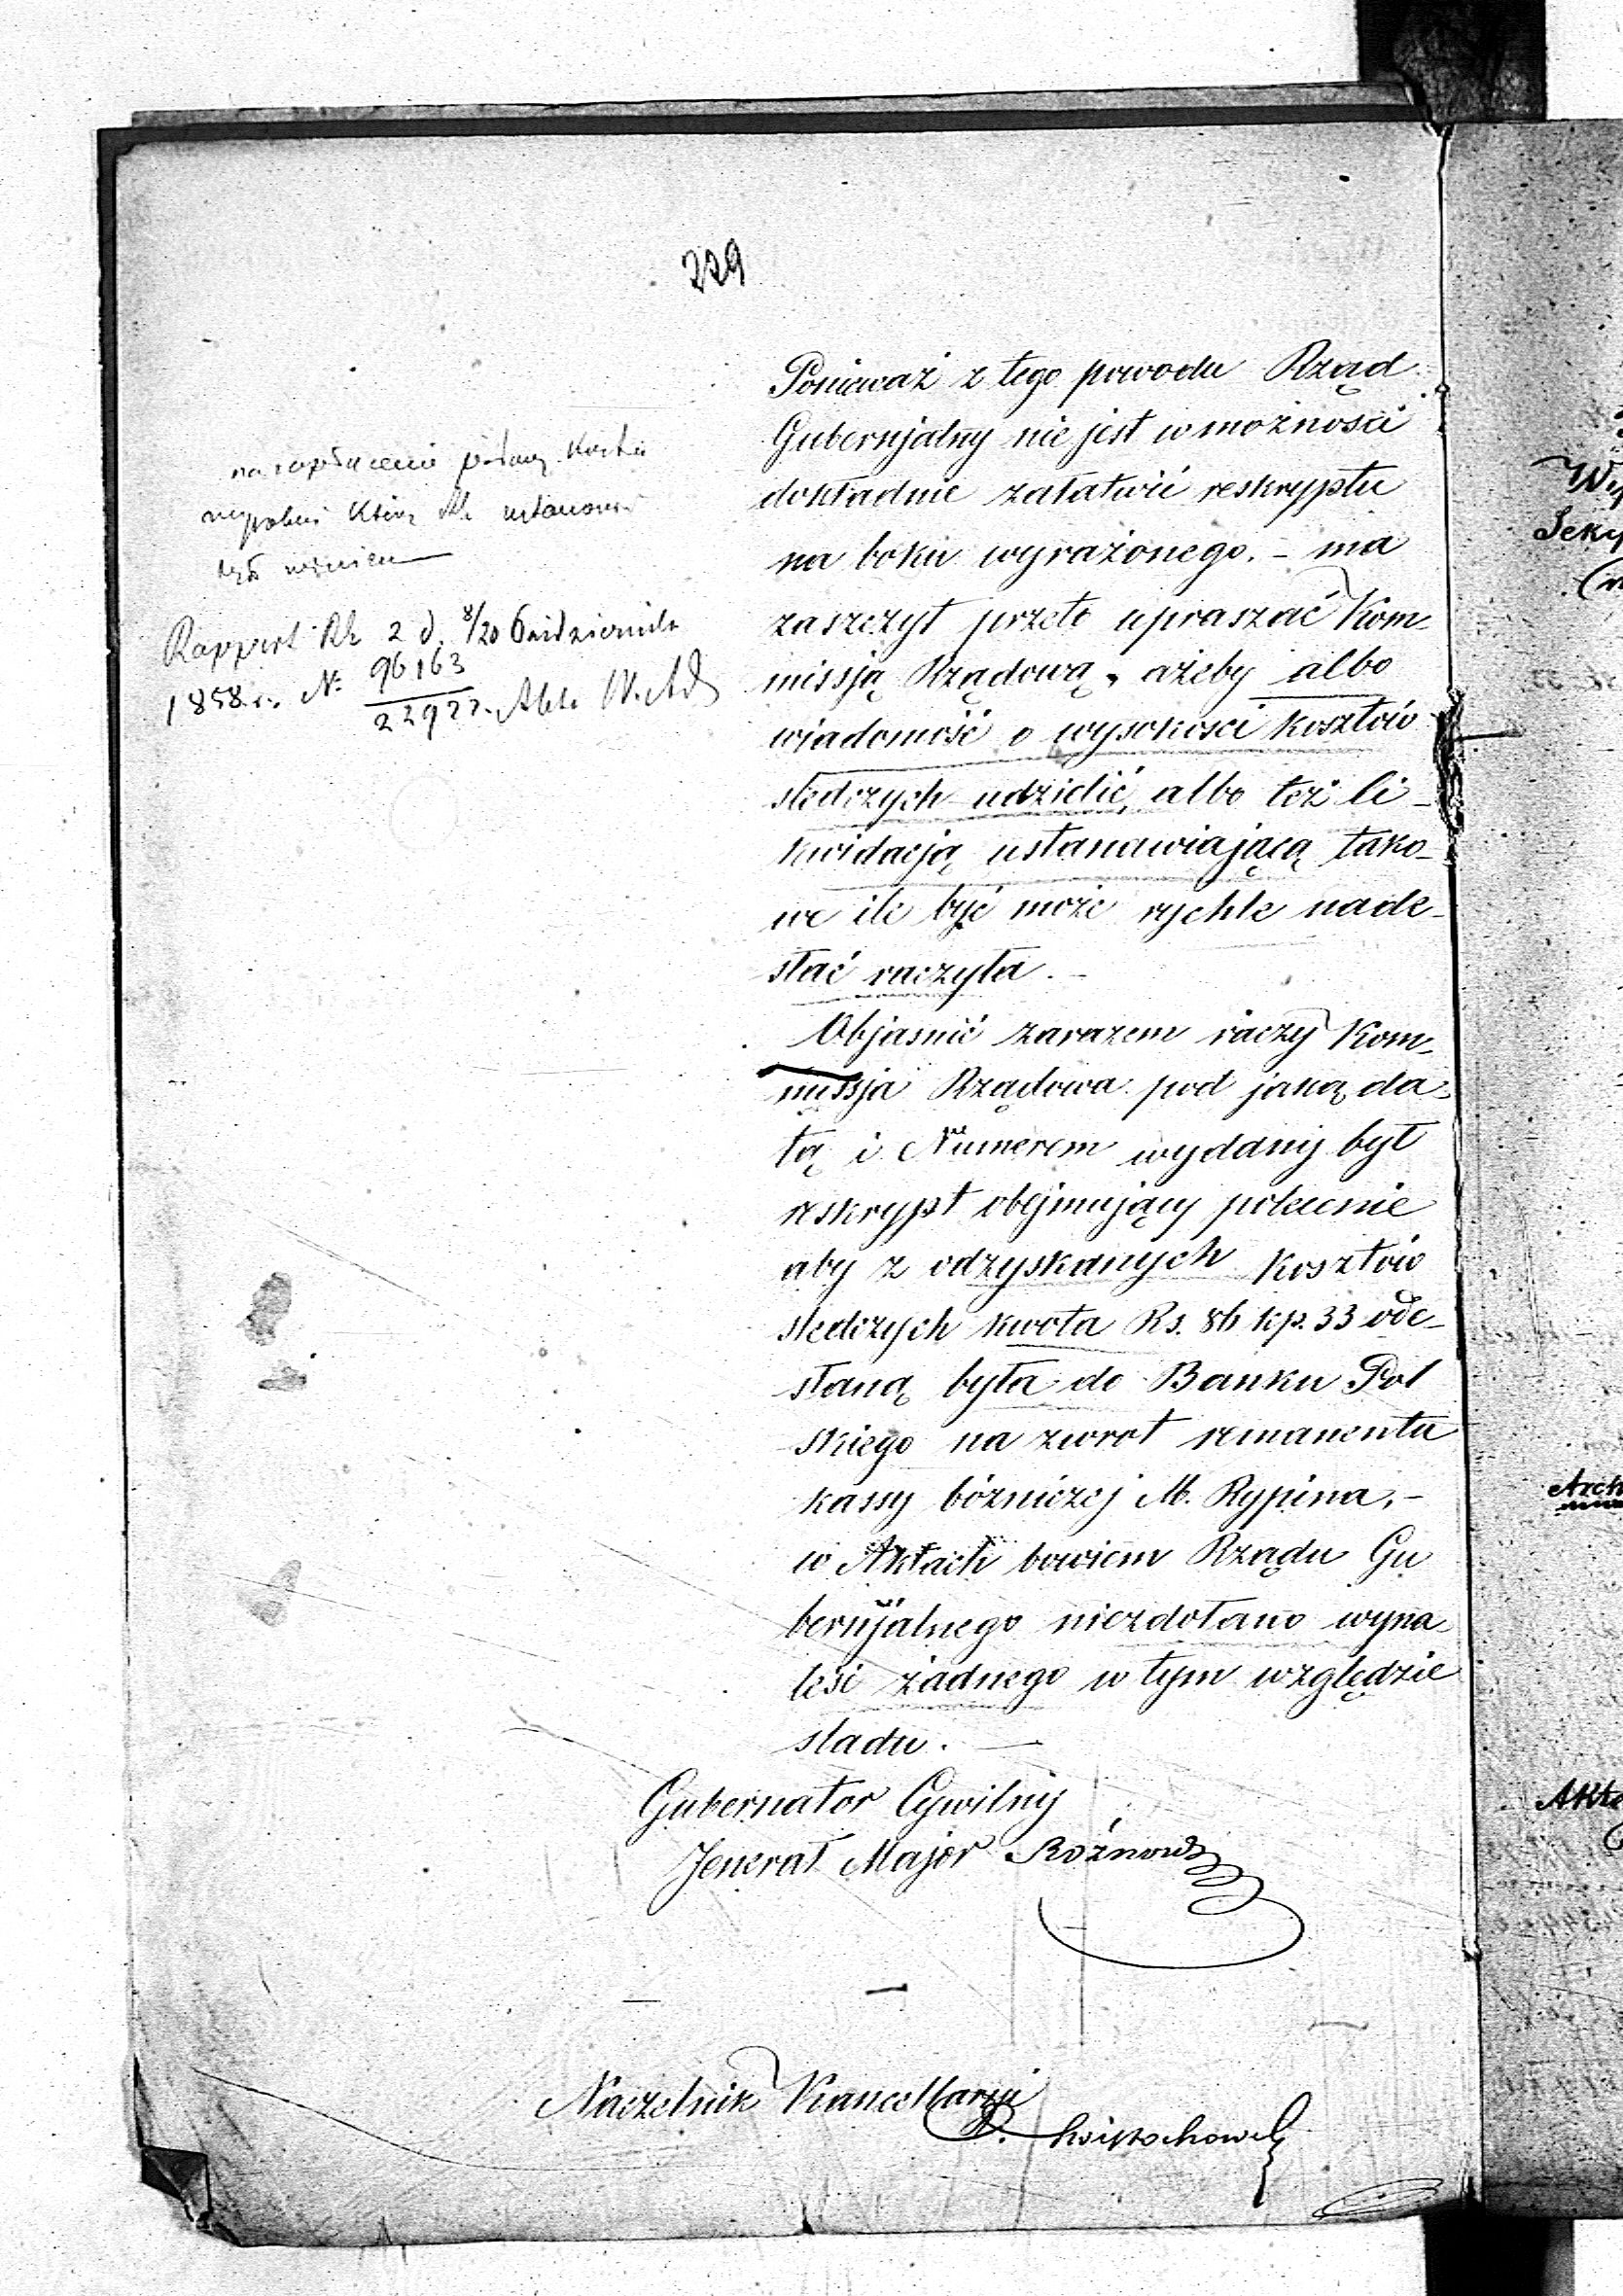 229
Rapport 2 d. 8/20 Października
1858 r. N: 96163
22977.
Ponieważ z tego powodu Rząd
Gubernjalny nie jest w możności
dokładnie załatwić reskryptu
na boku wyrażonego. – ma
zaszczyt przeto upraszać Kom-
missją Rządową, ażeby albo
wiadomość o wysokości kosztów
śledczych udzielić, albo też li-
kwidacją ustanawiającą tako-
we ile być może rychle nade-
słać raczyła. –
Objasnić zarazem raczy Kom-
missja Rządowa pod jaką da-
tą i Numerem wydany był
reskrypt obejmujący polecenie
aby z odzyskanych kosztów
śledczych kwota Rs. 86 kp. 33 ode-
słaną była do Banku Pol
skiego na zwrot remanentu
kassy bóżniczej M. Rypina, –
w Aktach bowiem Rządu Gu
bernjalnego niezdołano wyna-
leść żadnego w tym względzie
sladu. –
Gubernator Cywilny
Jenerał Major
Naczelnik Kancellaryi
Wy
Seky
Arch
Akta